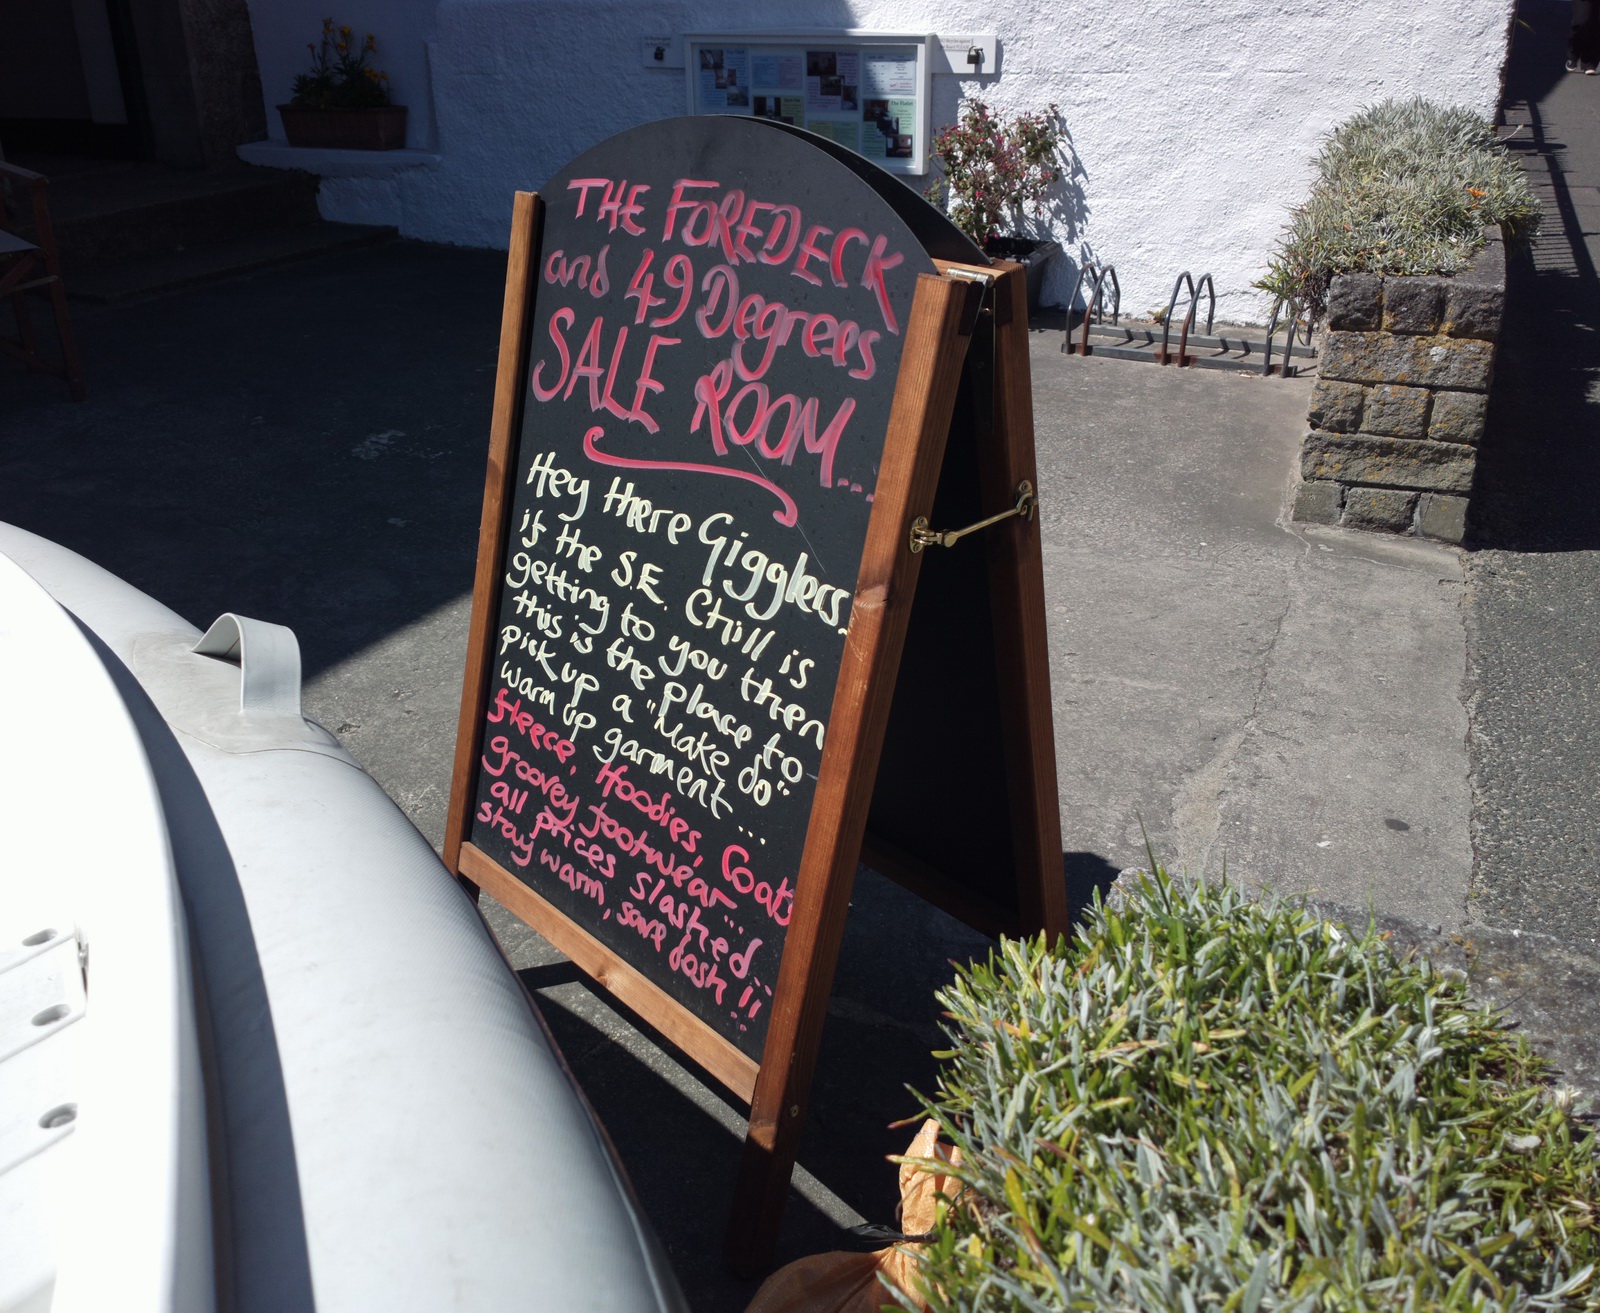 THE FOREDECK
and 49 Degrees
SALE ROOM...
Hey there Gigglers.
if the S.E. Chill is
getting to you then
this is the place to
pick up a "Make do"
warm up garment ...
fleece, Hoodies, Coats
groovey footwear...
all prices slashed..
stay warm, save dosh !!